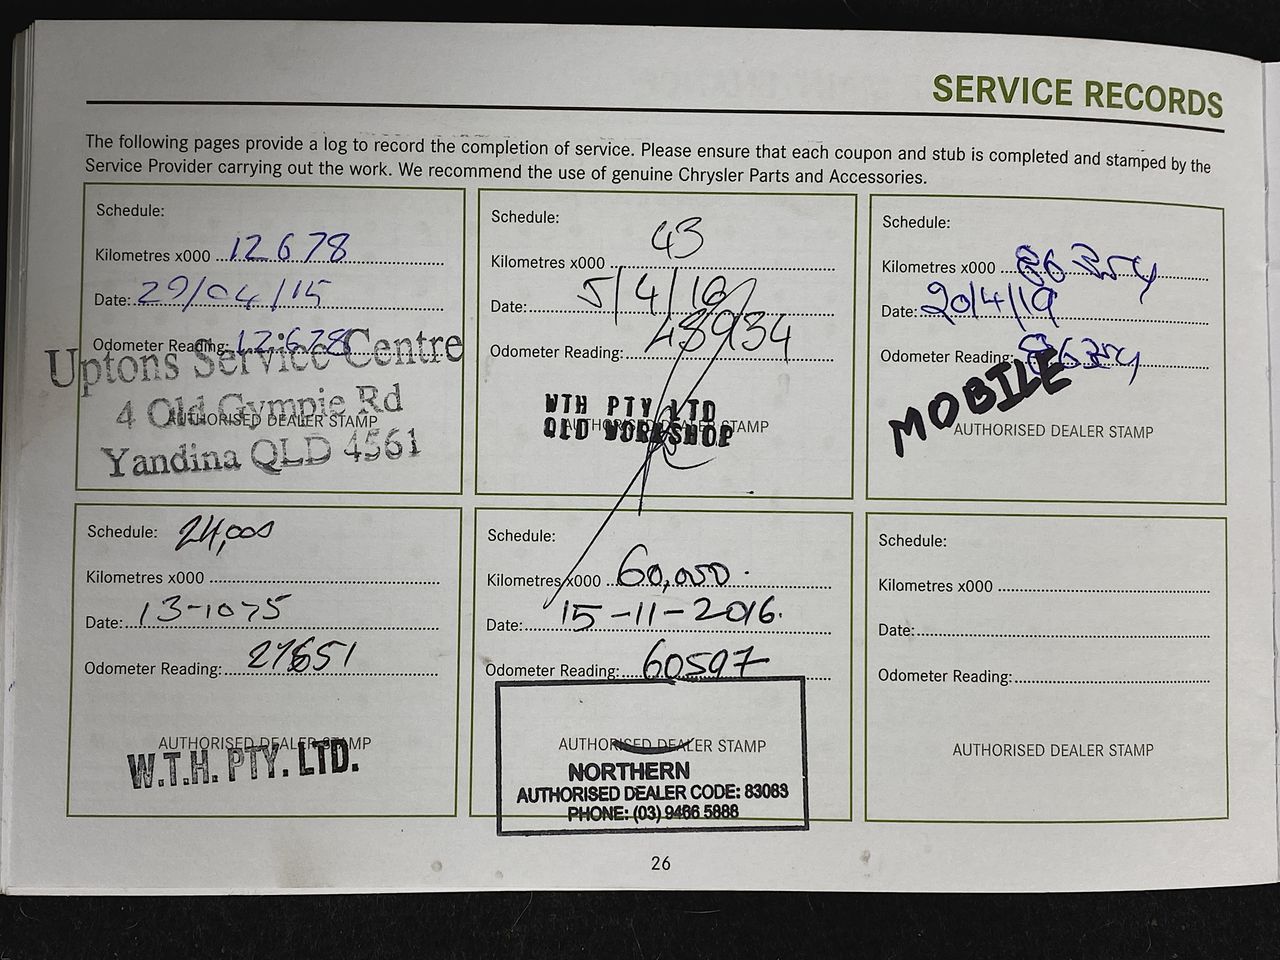 SERVICE RECORDS
The following pages provide a log to record the completion of service. Please ensure that each coupon and stub is completed and stamped by the
Service Provider carrying out the work. We recommend the use of genuine Chrysler Parts and Accessories.
Schedule:
Kilometres x000 12678
Date: 29/04/15
Odometer Reading: 12678
Uptons Service Centre
4 Old Gympie Rd
AUTHORISED DEALER STAMP
Yandina QLD 4561
Schedule:
Kilometres x000 43
Date: 5/4/16
Odometer Reading: 43934
WTH PTY LTD
AUTHORISED DEALER STAMP
QLD WORKSHOP
Schedule:
Kilometres x000 86354
Date: 20/4/19
Odometer Reading: 86354
MOBILE
AUTHORISED DEALER STAMP
Schedule: 24,000
Kilometres x000
Date: 13-10-15
Odometer Reading: 27651
AUTHORISED DEALER STAMP
W.T.H. PTY. LTD.
Schedule:
Kilometres x000 60,000.
Date: 15-11-2016.
Odometer Reading: 60597
AUTHORISED DEALER STAMP
NORTHERN
AUTHORISED DEALER CODE: 83083
PHONE: (03) 9466 5888
Schedule:
Kilometres x000
Date:
Odometer Reading:
AUTHORISED DEALER STAMP
26